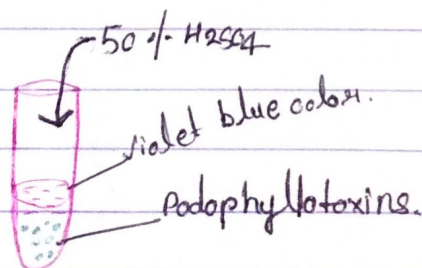 50 % H2SO4
violet blue color.
Podophyllotoxins.